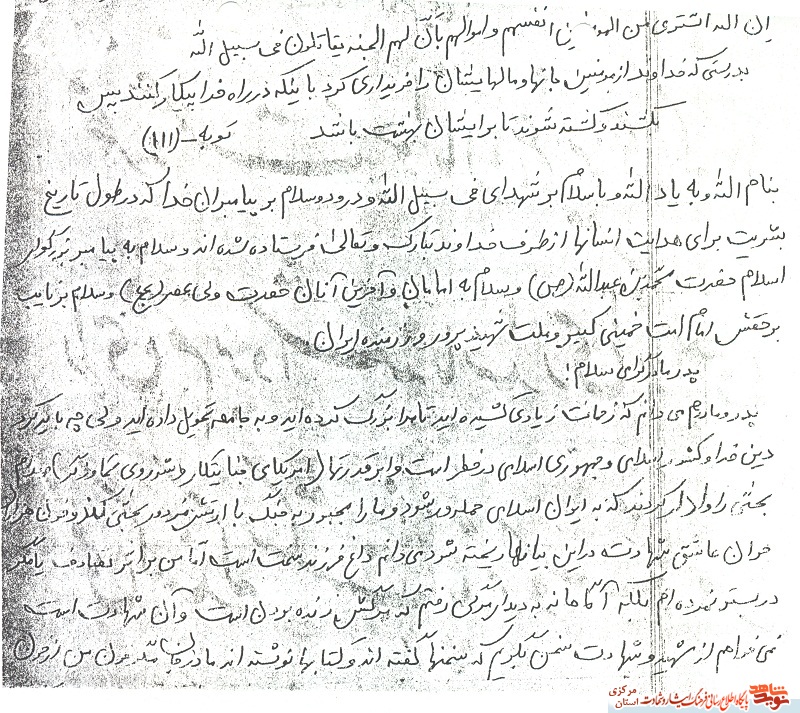 ان الله اشتری من المومنین انفسهم و اموالهم بأن لهم الجنه یقاتلون فی سبیل الله
بدرستی که خداوند از مومنین جانها و مالهایشان را خریداری کرد باینکه در راه خدا پیکار کنند پس
بکشند و کشته شوند تا برایشان بهشت باشد توبه-(۱۱۱)
بنام الله و به یاد الله و با سلام بر شهدای فی سبیل الله و درود و سلام بر پیامبران خدا که در طول تاریخ
بشریت برای هدایت انسانها از طرف خداوند تبارک و تعالی فرستاده شده اند و سلام به پیامبر بزرگوار
اسلام حضرت محمد بن عبدالله (ص) و سلام به امامان و آخرین آنان حضرت ولی عصر (عج) و سلام بر نایب
بر حقش امام امت خمینی کبیر و ملت شهید پرور و رزمنده ایران.
پدر مادر گرامی سلام!
پدر و مادرم می دانم که زحمات زیادی کشیده اید تا مرا بزرگ کرده اید و به جامعه تحویل داده اید ولی چه باید کرد
دین خدا و کشور اسلامی و جمهوری اسلامی در خطر است و ابرقدرتها (امریکای جنایتکار و شوروی) صدام
بعثی را وادار کردند که به ایران اسلامی حمله ور شود و ما را مجبور به جنگ با ارتش مزدور بعثی کنند و خون هزاران
جوان عاشق شهادت در این بیابانها ریخته شود می دانم داغ فرزند سخت است اما من بر اثر تصادف یا مرگ
در بستر نمرده ام بلکه آگاهانه به دیدار مرگی رفتم که مرگش زنده بودن است و آن شهادت است
نمی خواهم از شهید و شهادت سخن بگویم که سخنها گفته اند و کتابها نوشته اند مادر جان خون من از خون
نوید شاهد
پایگاه اطلاع رسانی فرهنگ ایثار و شهادت
استان مرکزی